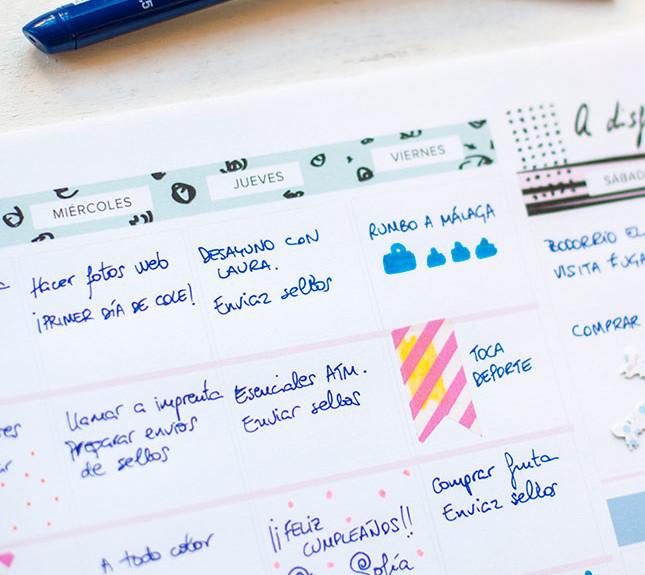 A
MIÉRCOLES
JUEVES
VIERNES
SÁBADO
Hacer fotos web
¡PRIMER DÍA DE COLE!
DESAYUNO CON
LAURA.
Enviar sellos
RUMBO A MÁLAGA
BODORRIO EL
VISITA
COMPRAR
Llamar a imprenta
Preparar envios
de sellos
Esenciales ATM.
Enviar sellos
TOCA
DEPORTE
A todo color
¡¡FELIZ
CUMPLEAÑOS!!
Sofía
Comprar fruta
Enviar sellos